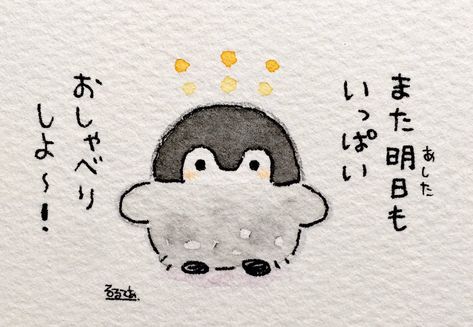 また明日も
あした
いっぱい
おしゃべり
しよ～！
るるてあ